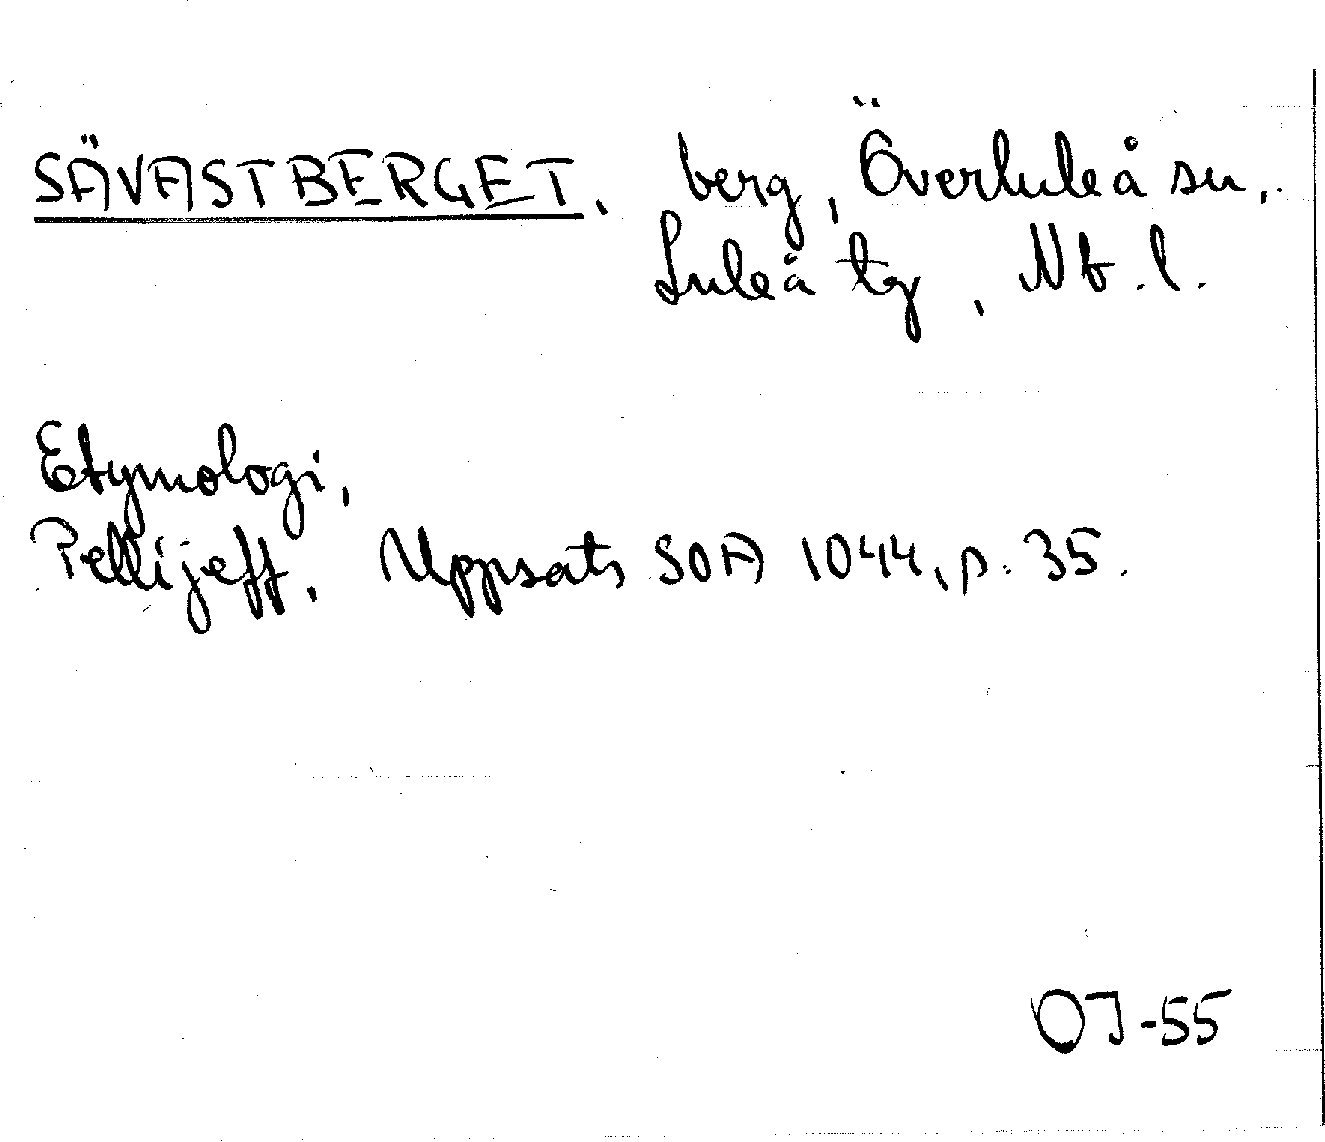 SÄVASTBERGET, berg, Överluleå sn,
Luleå tg, Nb. l.
Etymologi,
Pellijeff, Uppsats SOA 1044, p. 35.
OJ-55